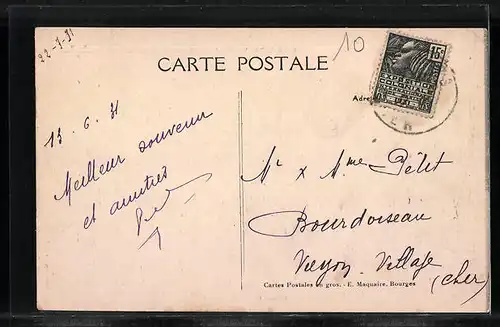 22-7-31
10
CARTE POSTALE
15c
EXPOSITION
COLONIALE
INTERNATIONALE
Adre
13.6.31
Meilleur souvenir
et amitiés
Mr x Mme Pétit
Bourdoiseau
Vierzon-Village
(Cher)
Cartes Postales en gros. - E. Maquaire, Bourges